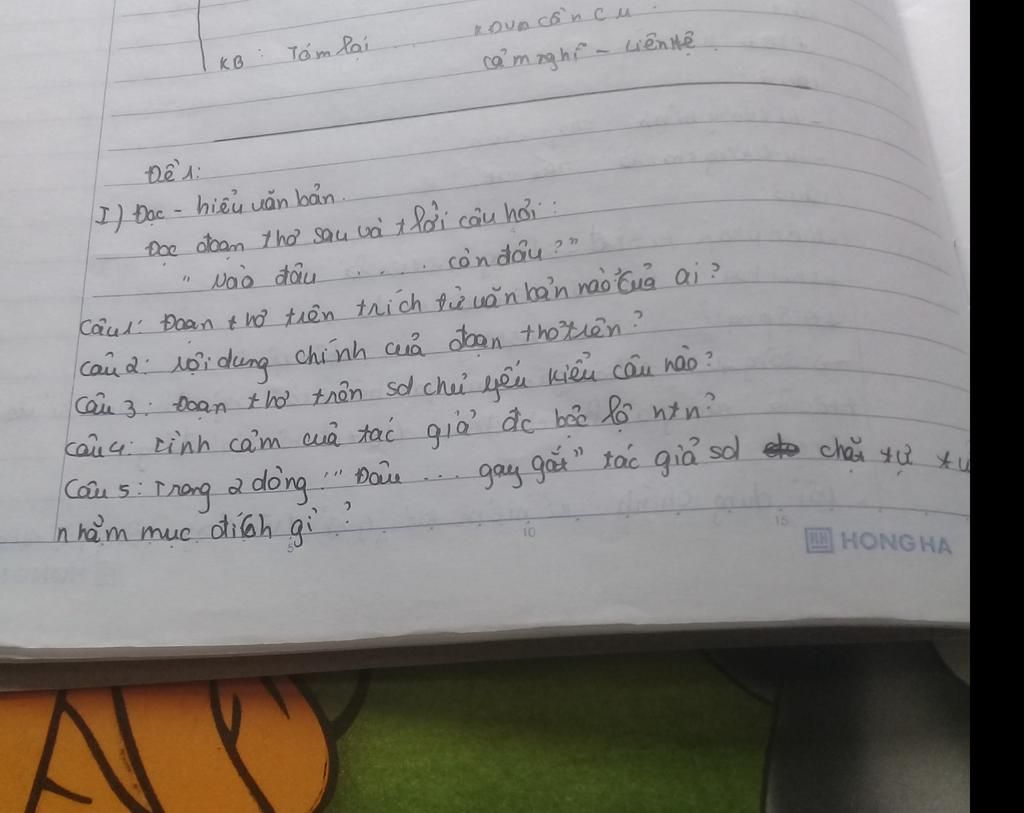 cần cù.
KB: Tóm lại ... cảm nghĩ - liên hệ.
Đề 1:
I) Đọc - hiểu văn bản.
Đọc đoạn thơ sau và t lời câu hỏi:
" Nào đâu .... còn đâu?"
Câu 1: Đoạn thơ trên trích từ văn bản nào? của ai?
Câu 2: Nội dung chính của đoạn thơ trên?
Câu 3: Đoạn thơ trên sd chủ yếu kiểu câu nào?
Câu 4: Tình cảm của tác giả đc bộc lộ ntn?
Câu 5: Trong 2 dòng "Đâu ... gay gắt" tác giả sd
nhằm mục đích gì?
5 10 15
HH HONG HA